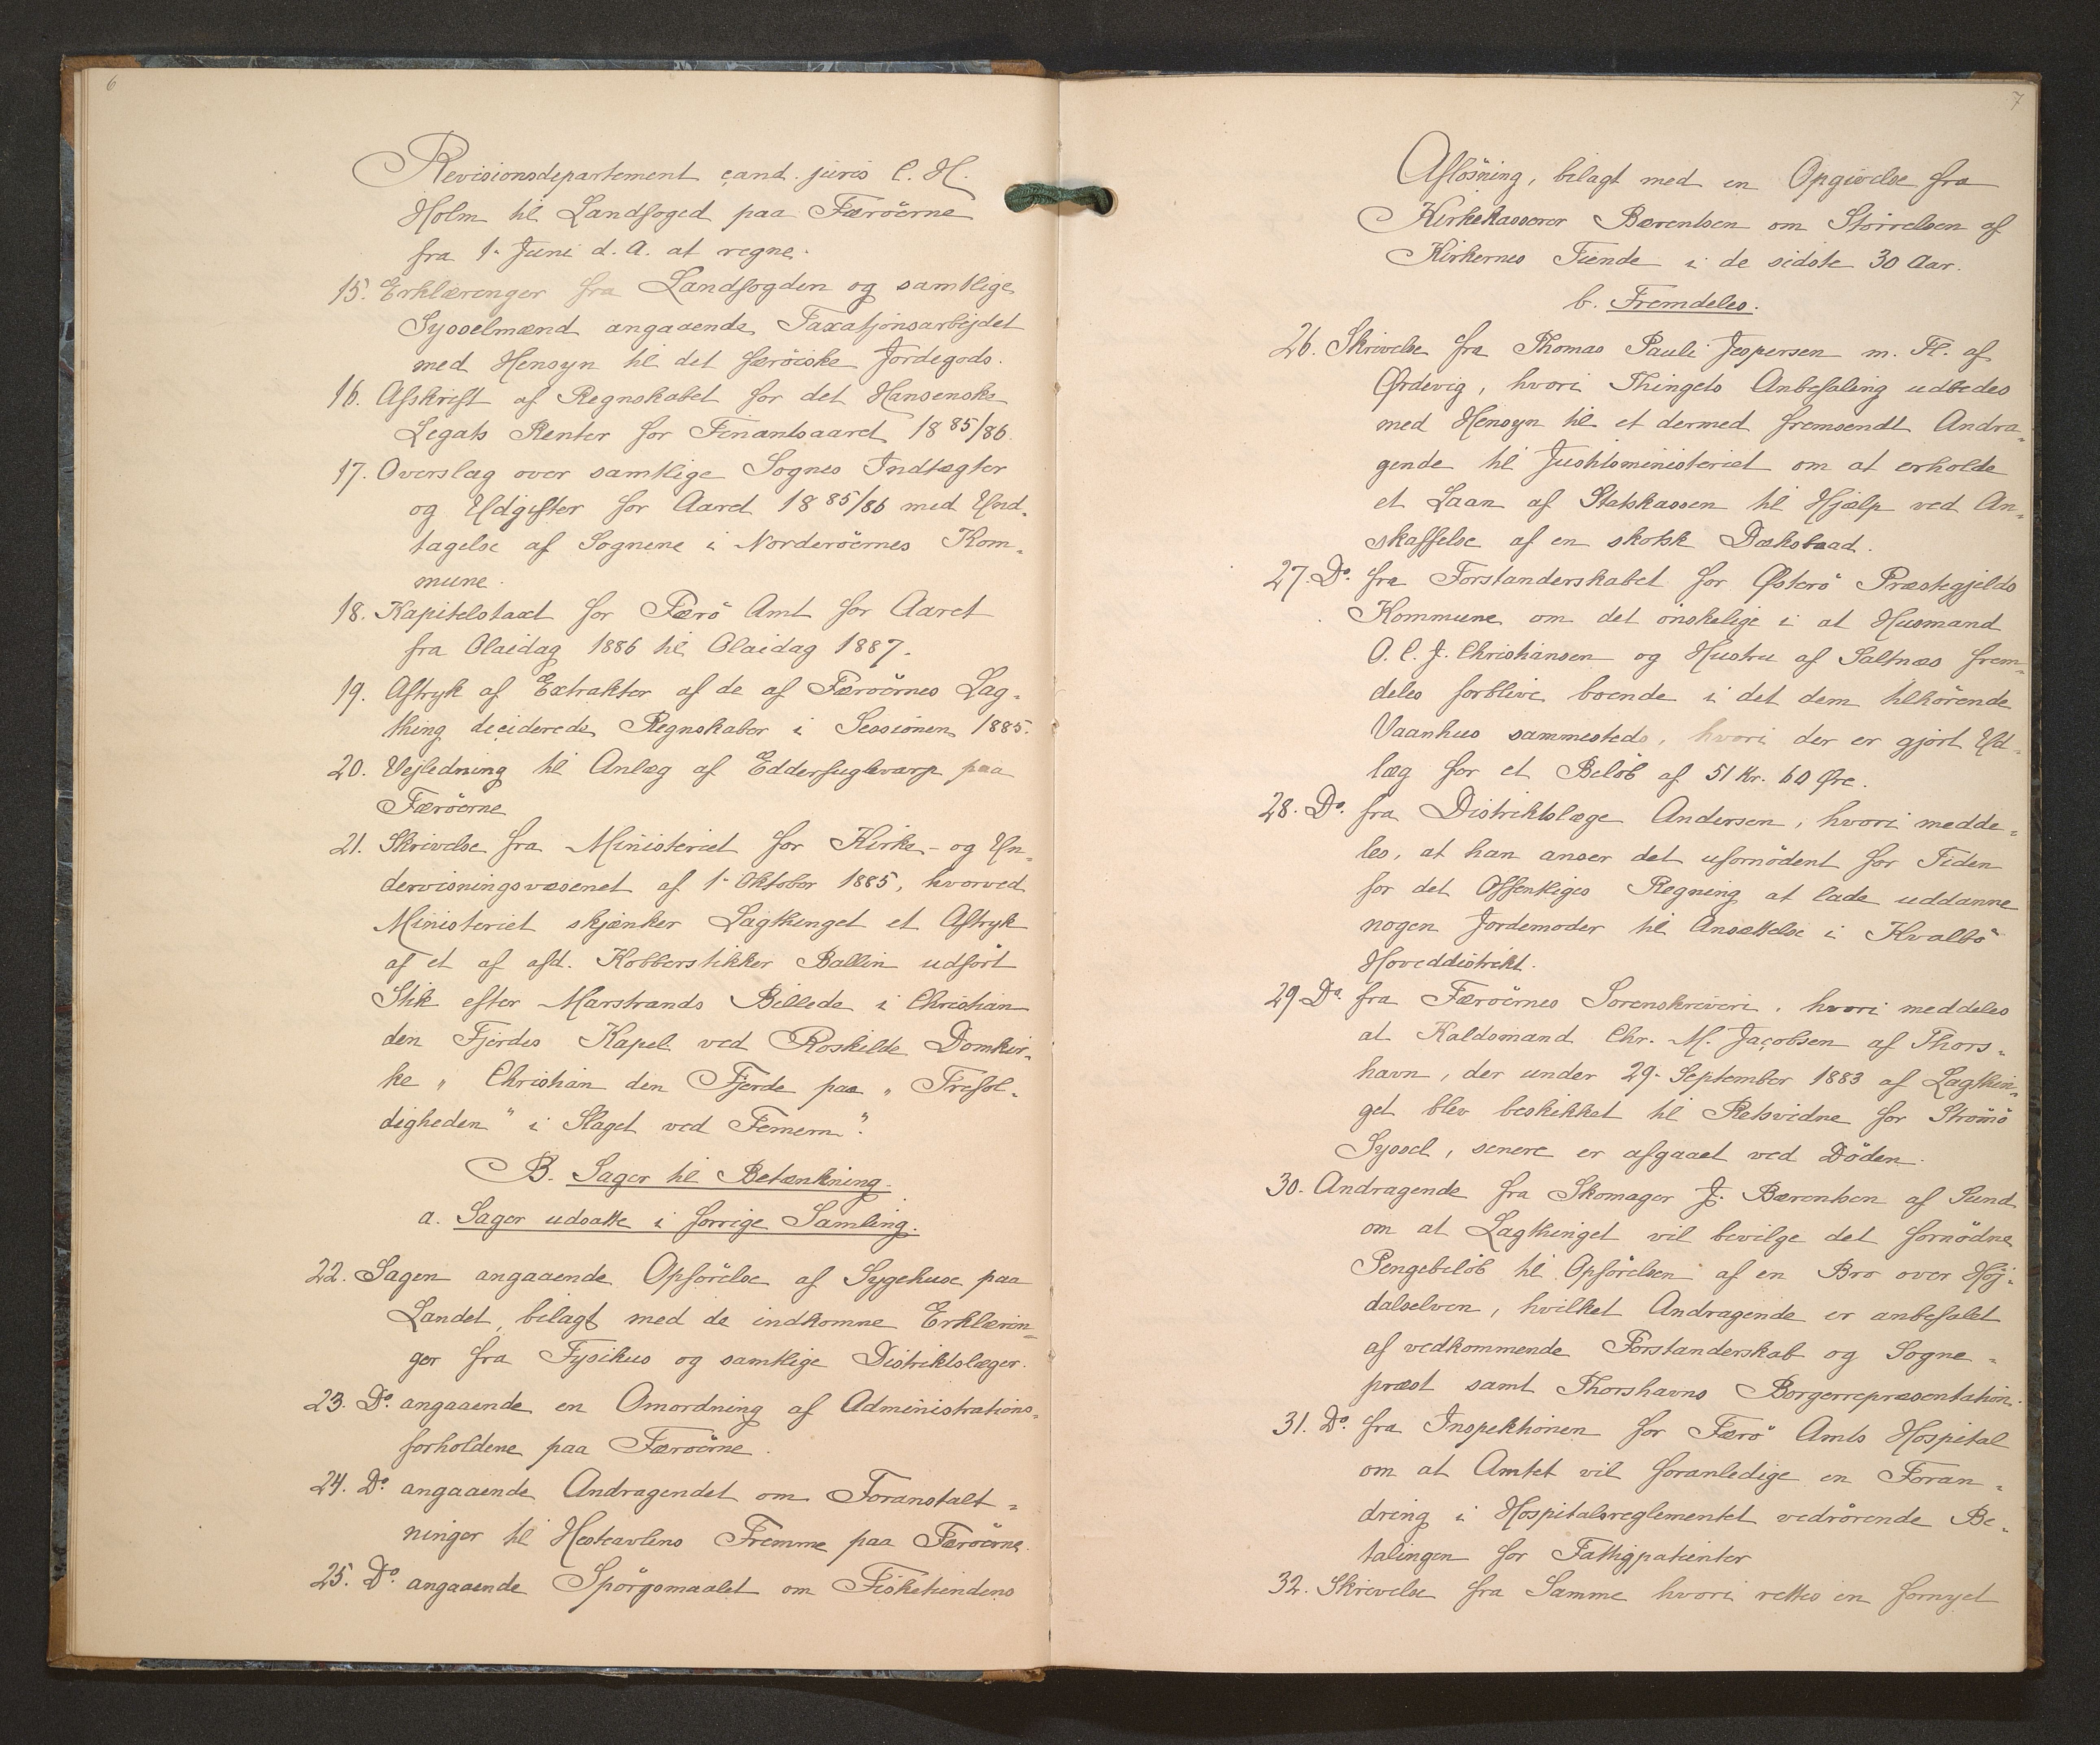 6
Revisionsdepartement cand. juris C. H.
Holm til Landfoged paa Færöerne
fra 1. Juni d. A. at regne.
15. Erklæringer fra Landfogden og samtlige
Sysselmænd angaaende Taxatjonsarbejdet
med Hensyn til det færöiske Jordegods.
16. Afskrift af Regnskabet for det Hansenske
Legats Renter for Finantsaaret 1885/86.
17. Overslag over samtlige Sognes Indtægter
og Udgifter for Aaret 1885/86 med Und-
tagelse af Sognene i Norderöernes Kom-
mune.
18. Kapitelstaxt for Færö Amt for Aaret
fra Olaidag 1886 til Olaidag 1887.
19. Aftryk af Extrakter af de af Færöernes Lag-
thing deciderede Regnskaber i Sessionen 1885.
20. Vejledning til Anlæg af Edderfuglevarp paa
Færöerne
21. Skrivelse fra Ministeriet for Kirke- og Un-
dervisningsvæsenet af 1. Oktober 1885, hvorved
Ministeriet skjænker Lagthinget et Aftryk
af et af afd. Kobberstikker Ballin udfört
Stik efter Marstrands Billede i Christian
den Fjerdes Kapel ved Roskilde Domkir-
ke „Christian den Fjerde paa „Trefol-
digheden" i Slaget ved Femern".
B. Sager til Betænkning.
a. Sager udsatte i forrige Samling.
22. Sagen angaaende Opförelse af Sygehuse paa
Landet, bilagt med de indkomne Erklærin-
ger fra Fysikus og samtlige Distriktslæger.
23. Do. angaaende en Omordning af Administrations-
forholdene paa Færöerne.
24. Do. angaaende Andragendet om Foranstalt-
ninger til Hesteavlens Fremme paa Færöerne.
25. Do. angaaende Spörgsmaalet om Fisketiendens
7
Aflösning, bilagt med en Opgivelse fra
Kirkekasserer Bærentsen om Störrelsen af
Kirkernes Tiende i de sidste 30 Aar.
b. Fremdeles.
26. Skrivelse fra Thomas Pauli Jespersen m. Fl. af
Ørdevig, hvori Thingets Anbefaling udbedes
med Hensyn til et dermed fremsendt Andra-
gende til Justitsministeriet om at erholde
et Laan af Statskassen til Hjælp ved An-
skaffelse af en skotsk Dæksbaad.
27. Do. fra Forstanderskabet for Østerö Præstegjelds
Kommune om det önskelige i at Husmand
O. C. J. Christiansen og Hustru af Saltnæs frem-
deles forblive boende i det dem tilhörende
Vaanhus sammesteds, hvori der er gjort Ud-
læg for et Belöb af 51 Kr. 60 Øre.
28. Do. fra Distriktslæge Andersen, hvori medde-
les, at han anser det ufornödent for Tiden
for det Offentliges Regning at lade uddanne
nogen Jordemoder til Ansættelse i Kvalbö
Hoveddistrikt.
29. Do. fra Færöernes Sorenskriveri, hvori meddeles
at Kaldsmand Chr. M. Jacobsen af Thors-
havn, der under 29. September 1883 af Lagthin-
get blev beskikket til Retsvidne for Strömö
Syssel, senere er afgaaet ved Döden.
30. Andragende fra Skomager J. Bærentsen af Sund
om at Lagthinget vil bevilge det fornödne
Pengebelöb til Opförelsen af en Bro over Höj-
dalselven, hvilket Andragende er anbefalet
af vedkommende Forstanderskab og Sogne-
præst samt Thorshavns Borgerrepræsentation.
31. Do. fra Inspektionen for Færö Amts Hospital
om at Amtet vil foranledige en Foran-
dring i Hospitalsreglementet vedrörende Be-
talingen for Fattigpatienter
32. Skrivelse fra Samme hvori rettes en fornyet